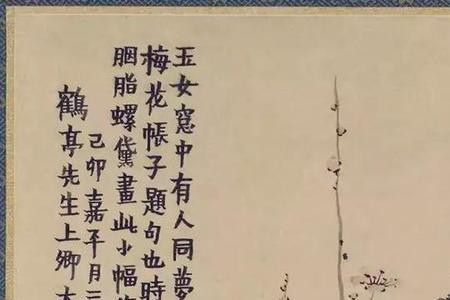 玉女窓中有人同夢
梅花帳子題句也時
胭脂螺黛畫此小幅
己卯嘉平月三
鶴亭先生上卿大